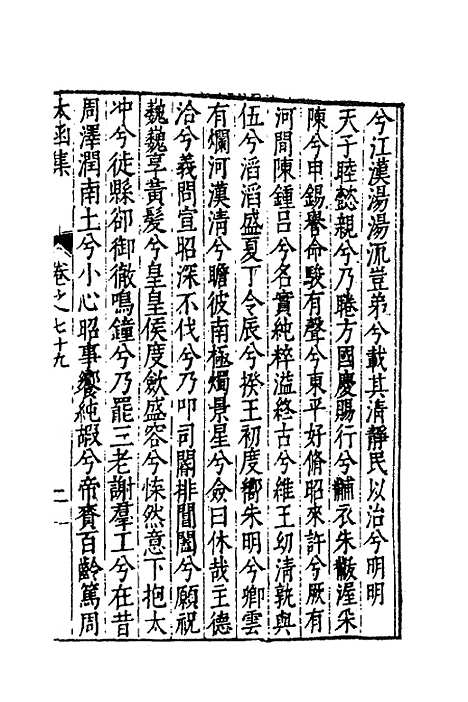 兮江漢湯湯沠豈弟兮載其清靜民以治兮明明
天子睦懿親兮乃睠方國慶賜行兮黼衣朱黻渥采
陳兮甲錫譽命駿有聲兮東平好脩昭來許兮厥有
河間陳鍾呂兮名實純粹溢終古兮維王幼清孰與
伍兮滔滔盛夏丁令辰兮揆王初度嚮朱明兮卿雲
有爛河漢清兮瞻彼南極燭景星兮僉曰休哉王德
洽兮義問宣昭深不伐兮乃叩司閽排閶闔兮願祝
魏魏享黃髮兮皇皇侯度歛盛容兮悚然意下抱太
冲兮徒縣卻御徹鳴鐘兮乃罷三老謝羣工兮在昔
周澤潤南土兮小心昭事饗純嘏兮帝賚百齡篤周
太函集
卷之七十九
二